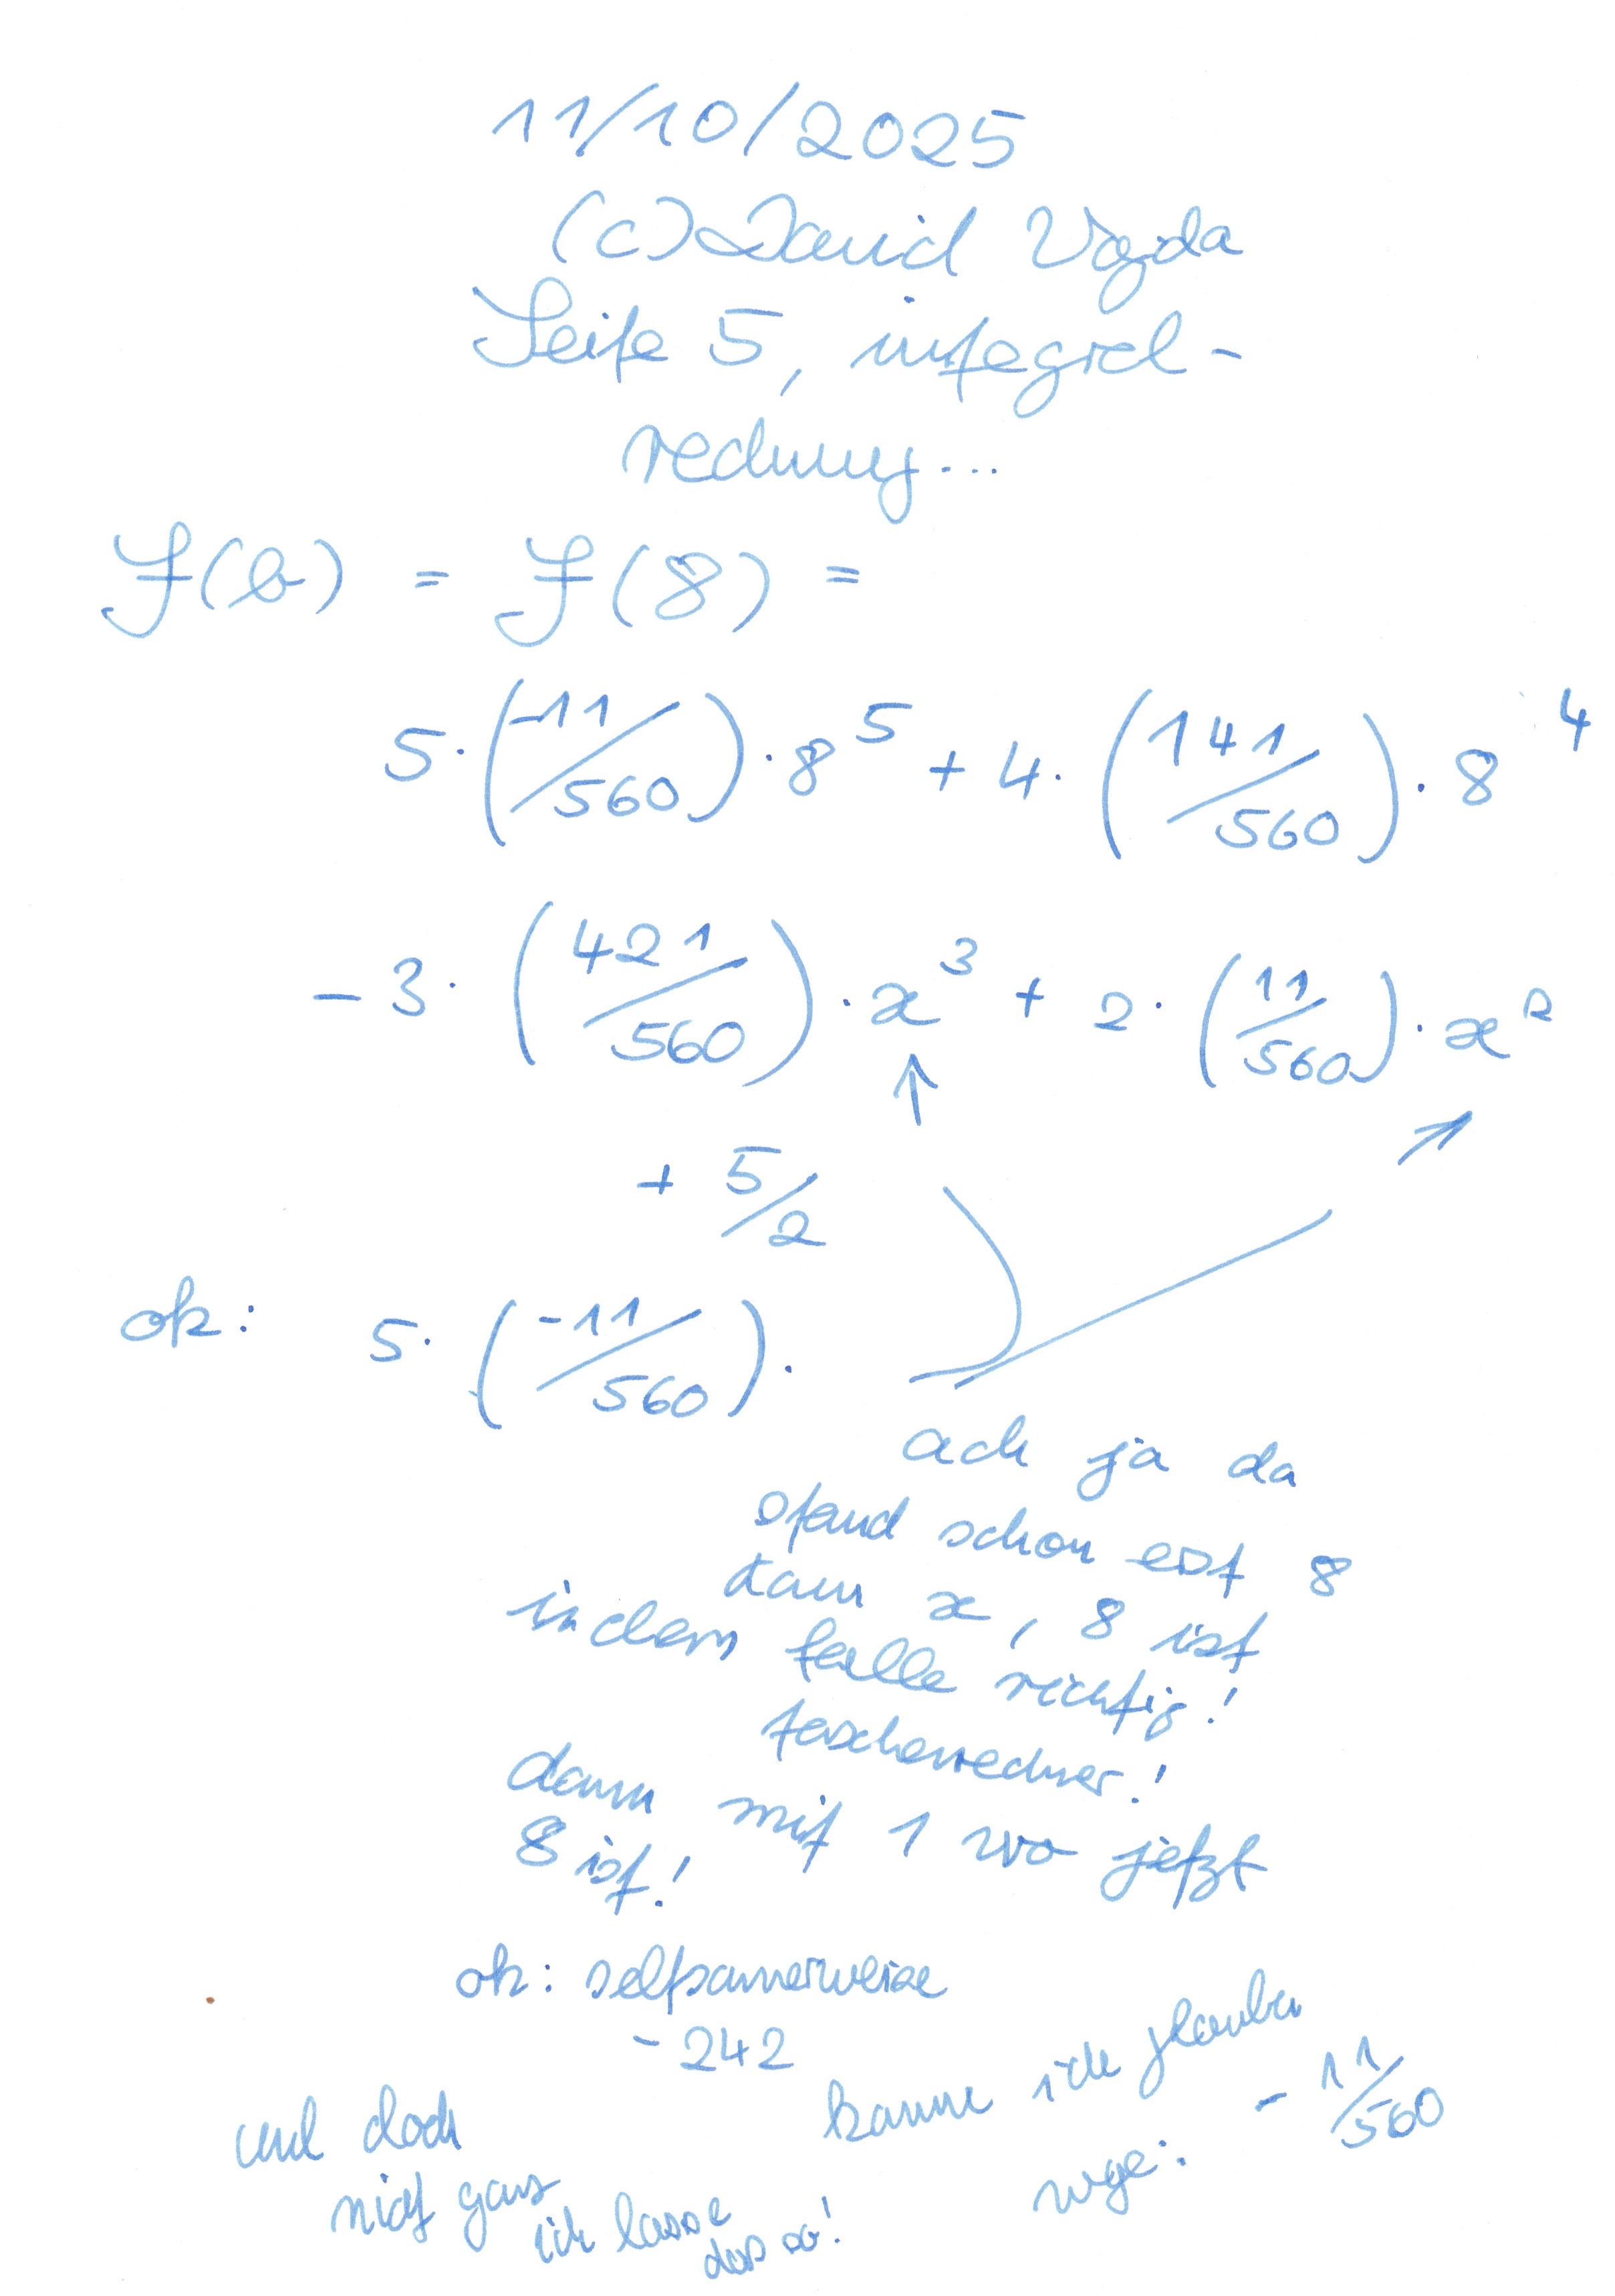 11/10/2025
(c) David Vajda
Seite 5, integral-
rechnung...
F(b) = F(8) =
5·(-11/560)·8^5 + 4·(141/560)·8^4
- 3·(421/560)·x^3 + 2·(11/560)·x^2
↑
+ 5/2
ok: 5·(-11/560)·
ach ja da
stand schon erst 8
dann x, 8 ist
in dem falle richtig!
taschenrechner!
dann mit 1 wo jetzt
8 ist!
ok: seltsamerweise
-242
kann ich glauben
wege: - 11/560
und doch
nicht ganz
ich lasse
das so!